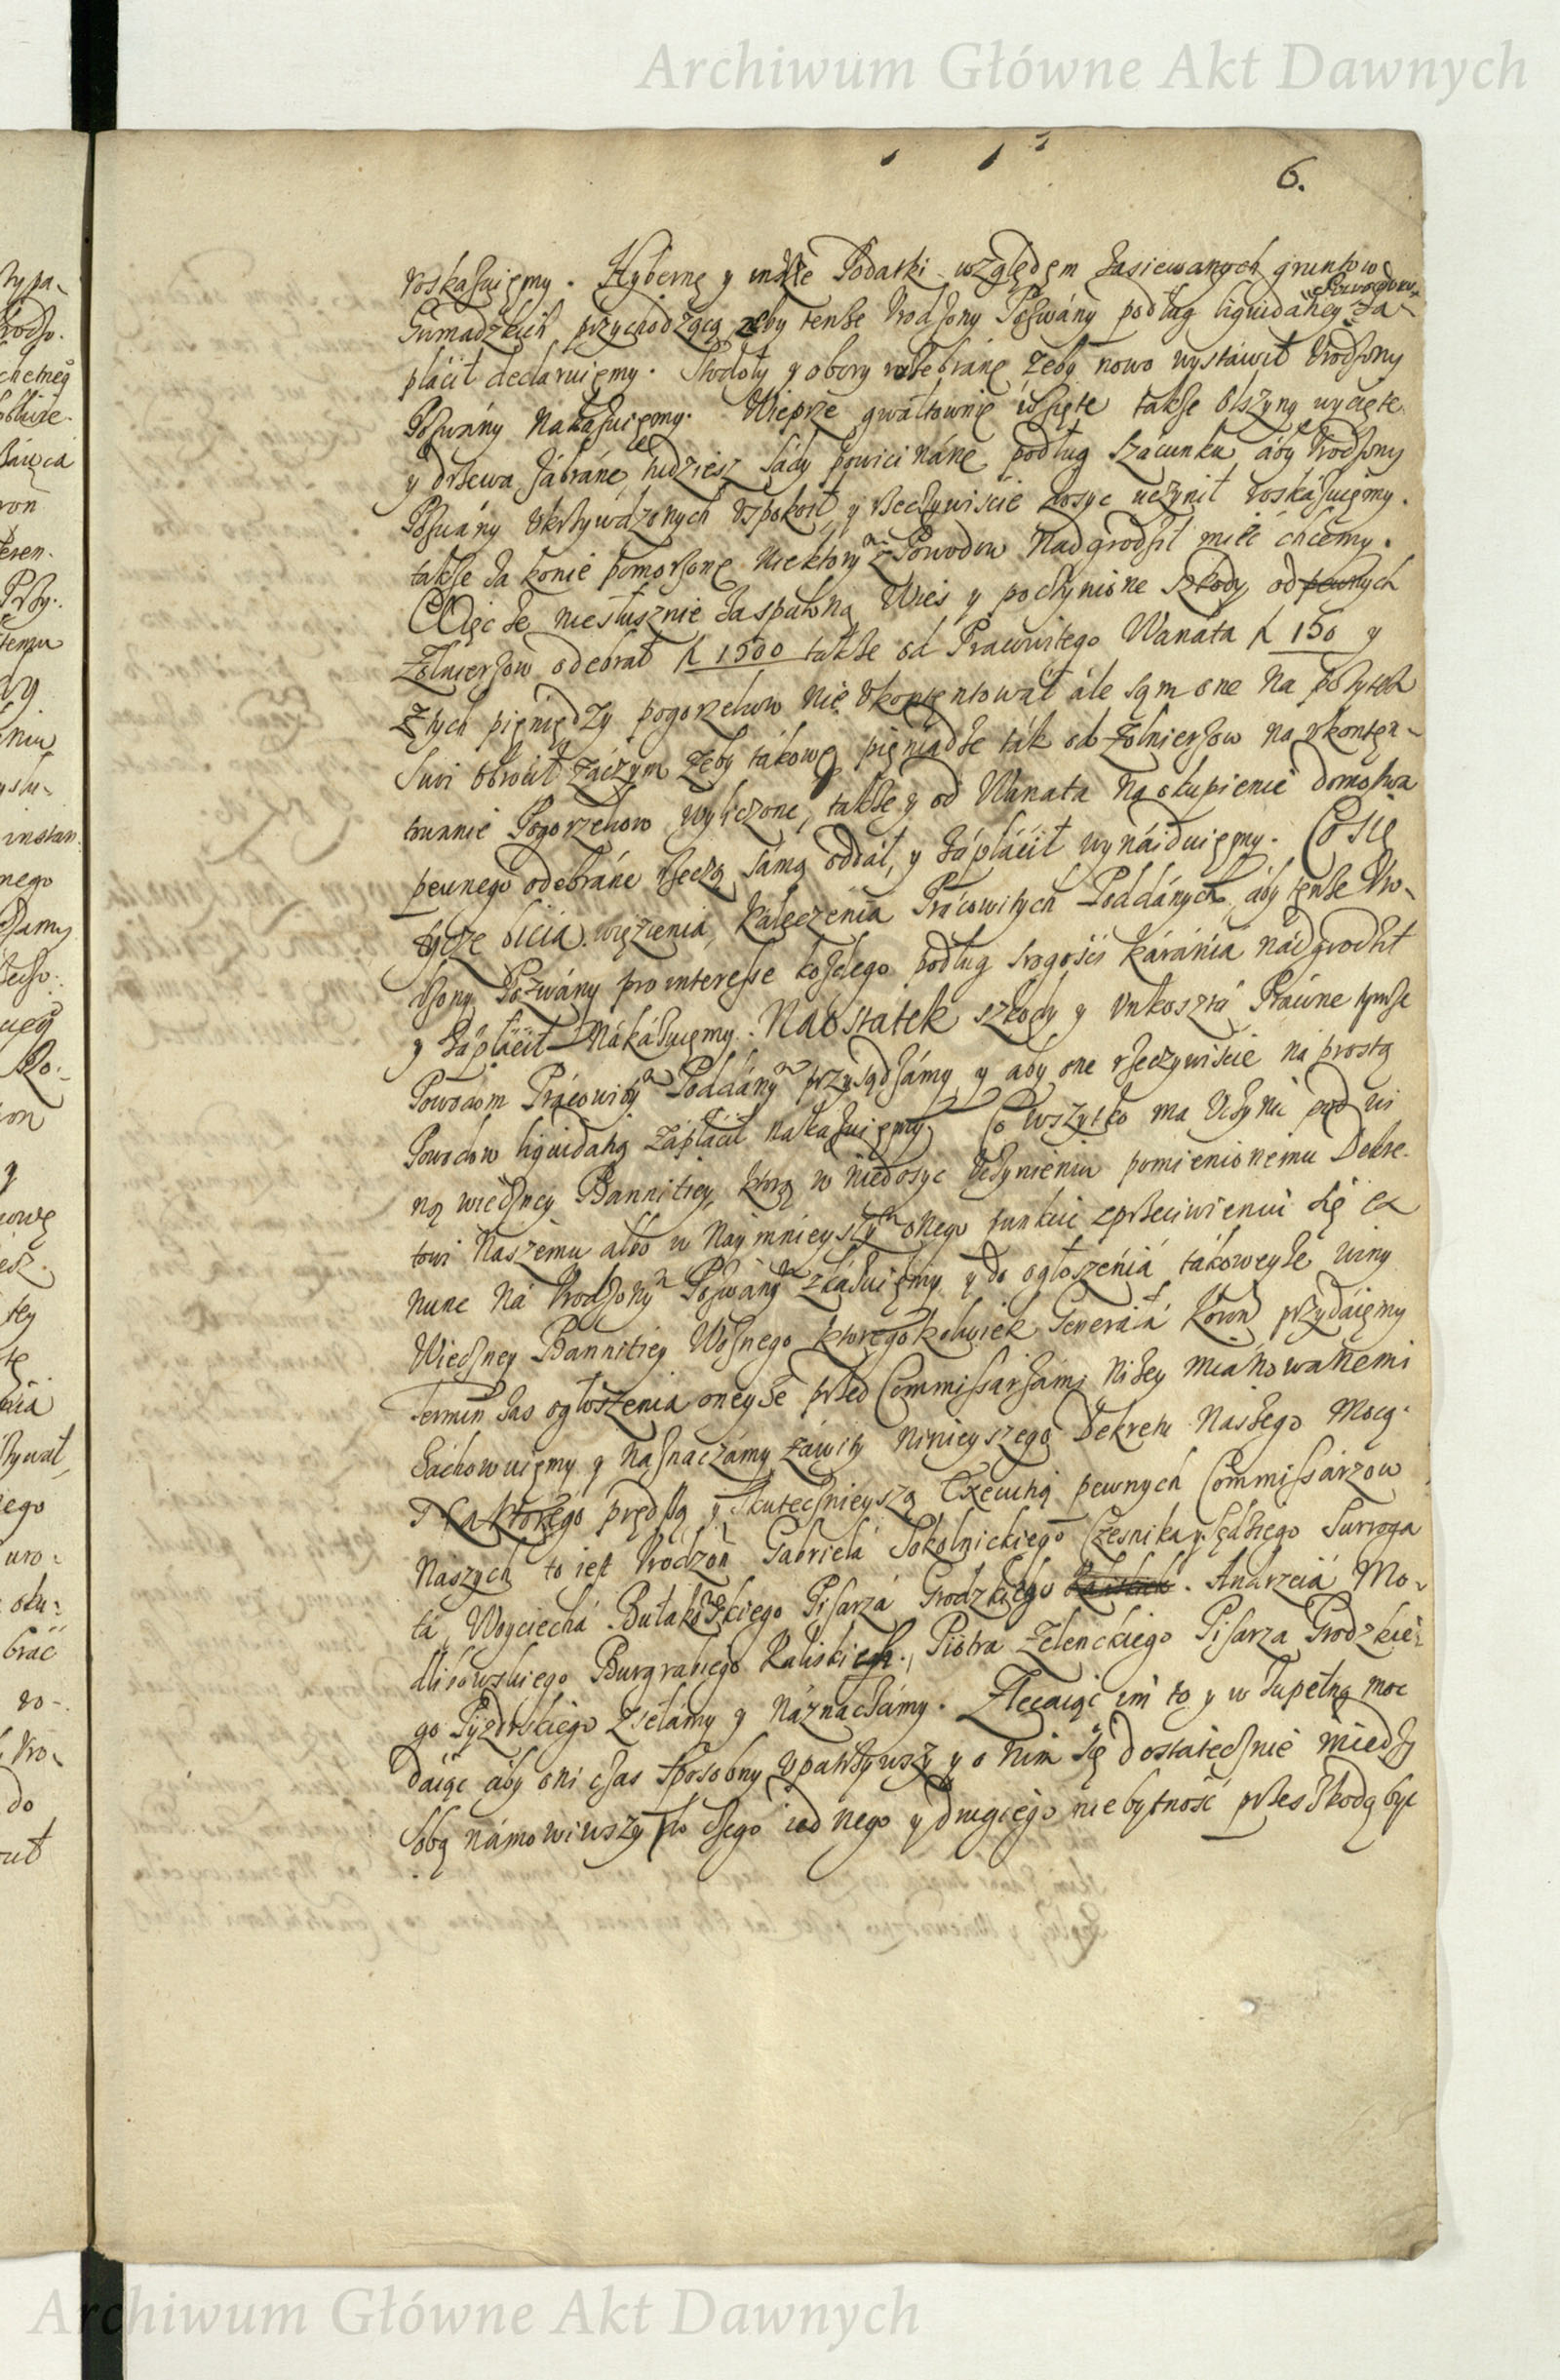 Archiwum Główne Akt Dawnych
6.
roskazuięmy. Hybernę y inksze Podatki względęm zasiewanych gruntow
Gumadzkich przychodzącą zeby tenże Vrodzony Pozwány podług liquidatiey Powodow za-
płácił declaruięmy. Stodoły y obory rozebránę zeby nowo wystáwił Vrodzony
Pozwány Nakázuięmy. Wieprze gwałtownię wzięte takze Olszyny wycięte
y drzewa zábráne, tudziesz sády powiciname podług szácunku áby Vrodzony
Pozwány Vkrzywdzonych Vspokoił y rzeczywiście dosyc uczynił roskázuięmy.
takze za konie pomorzonę niektory z Powodow Nadgrodził mieć chcemy.
Więc ze niesłusznie zaspaloną Wieś y poczynione szkody od pewnych
Zołnierzow odebrał ƒ 1500 takze od Pracowitego Wanata ƒ 150 y
Ztych pięniędzy pogorzelcow nie Vkontentował ále sąm one na pożytek
Swoi obrocił záczym zeby tákowę pięniądze ták od Zołnierzow na vkontęn-
towanie Pogorzelcow wyliczone, takze y od Wanata na okupienie domostwa
pewnego odebráne rzeczą sámą oddał, y zápłácił wynáiduięmy. Co się
tycze bicia więzienia, kalęczenia Prácowitych Poddánych, áby tenże Vro-
dzony Pozwány pro interesse kozdego podług srogości káránia nádgrodził
y zápłácił Nákázuięmy. Naostatek szkody y Vnkoszta Práwne tymże
Powodom Prácowity Poddány przysądzámy y aby one rzeczywiście ná prostą
Powodow liquidatią zápłácił nakazuięmy. Co wszytko ma Vczynić pod wi
ną wieczney Bannitiey, ktorą w niedosyc Vczynieniu pomienionemu Dekre-
towi Naszemu albo w naymnieyszy onego punkcie zprzeciwieniu się ex
nunc ná Vrodzony Pozwány zkázuięmy y do ogłoszęniá tákoweyże winy
Wieczney Bannitiey Woznego ktoregokolwiek Generałá Koron przydáięmy
Termin zas ogłoszenia oneyże przed Commissarzámi niżey miánowanemi
Záchowuięmy y náznaczámy záwity ninieyszego Dekretu Naszego mocą.
Na ktorego prędszą y skutecznieyszą Exekutią pewnych Commissarzow
Naszych to iest Vrodzon Gabriela Sokolnickiego Cześnika y sędziego Surroga
tá, Woyciechá Bułakowskiego Pisarzá Grodzkiego. Andrzeiá Mo-
dliszowskiego Burgrabiego Kaliskiech, Piotra Zelenckiego Pisarza Grodzkie-
go Pyzdrskiego Zsełamy y Náznaczámy. Zlecaiąc im to y w zupełną moc
daiąc aby oni czas sposobny vpatrzywszy y o nim się dostatecznie miedzy
sobą námowiwszy do czego iednego y drugiego niebytność przeszkodą byc
Archiwum Główne Akt Dawnych